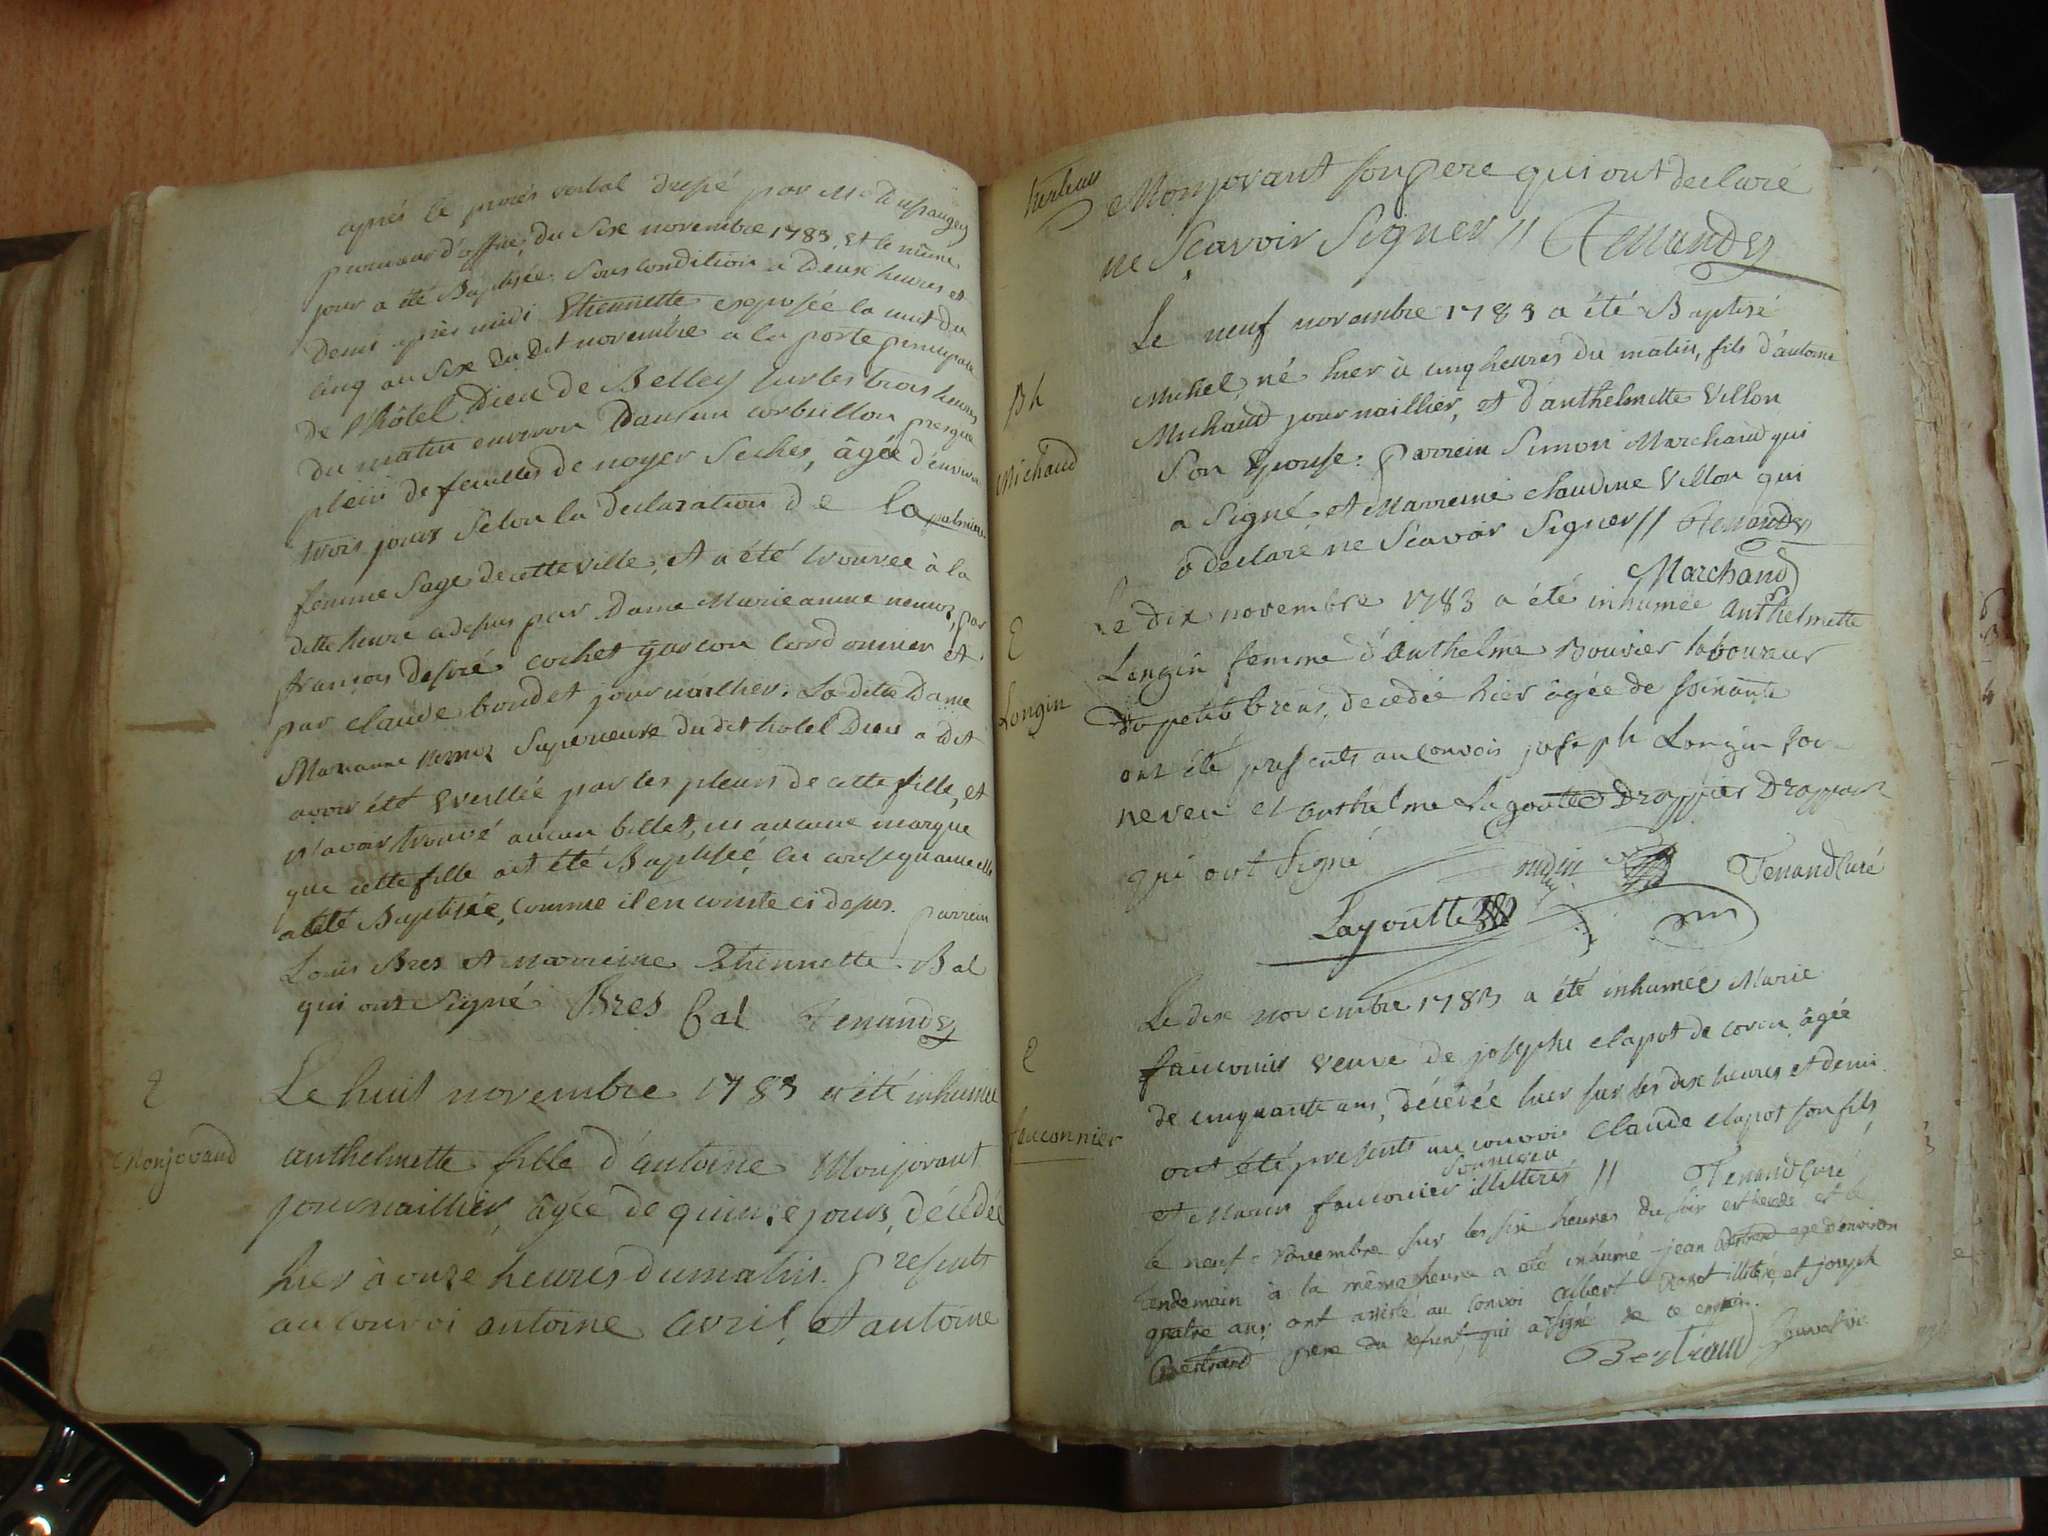 après le procès verbal dressé par Mr
procureur d'office, du Six novembre 1783. et le même
jour a été Baptisée Sous condition a Deux heures et
Demi après midi Etiennette exposée la nuit du
cinq au Six du dit novembre a la porte principale
de l'hôtel Dieu de Belley sur les trois heures
du matin environ Dans un corbeillon presque
plein de feuilles de noyer Seches, âgée d'environ
trois jours Selon la declaration de la palmiere
femme Sage de cette ville, et a été trouvée à la
ditte heure cidessus par Dame Marie anne nemoz, par
françois desiré cochet garcon cordonnier et
par claude boudet journallier. La ditte Dame
Marianne nemoz Superieure du dit hotel Dieu a dit
avoir été Eveillée par les pleurs de cette fille, et
n'avoir trouvé aucun billet, ni aucune marque
que cette fille ait été Baptisée, en consequence elle
a été Baptisée, comme il en conste ci dessus. parrein
Louis Bres et marreine Etiennette Bal
qui ont Signé Bres Bal Tenand
Monjovand
Le huit novembre 1783 a été inhumée
anthelmette fille d'antoine Monjovant
journaillier, âgée de quinze jours, décédée
hier à onze heures du matin. presents
au convoi antoine avril, et antoine
Monjovant son pere qui ont declaré
ne Sçavoir Signer // Tenand
Le neuf novembre 1783 a été Baptisé
Bt
Michel, né hier à cinq heures du matin, fils d'antoine
Michaud
Michaud journaillier, et d'anthelmette Villon
Son Epouse: parrein Simon Marchand qui
a Signé et Marreine claudine Villon qui
a declaré ne Scavoir Signer // Tenand
Marchand
Le dix novembre 1783 a été inhumée anthelmette
Longin
Longin femme d'Anthelme Bouvier laboureur
du petit brens, decedée hier âgée de soixante
ont été presents au convois joseph Longin son
neveu et anthelme Lagoutte Drappier
qui ont signé
Tenand Curé
Lagoutte
Le dix novembre 1783 a été inhumée Marie
fauconnier
fauconier veuve de joseph clapot de coron âgée
de cinquante ans, décédée hier sur les dix heures et demi.
ont été presents au convoi claude clapot son fils,
son neveu
et Marin fauconier illitterés // Tenand Curé
le neuf novembre sur les six heures du soir est decedé et le
lendemain à la même heure a été inhumé jean Bertrand agé d'environ
quatre ans, ont assisté au convoi albert Roset illitéré, et joseph
Bertrand pere du defunt, qui a signé de ce enquis.
Bertrand